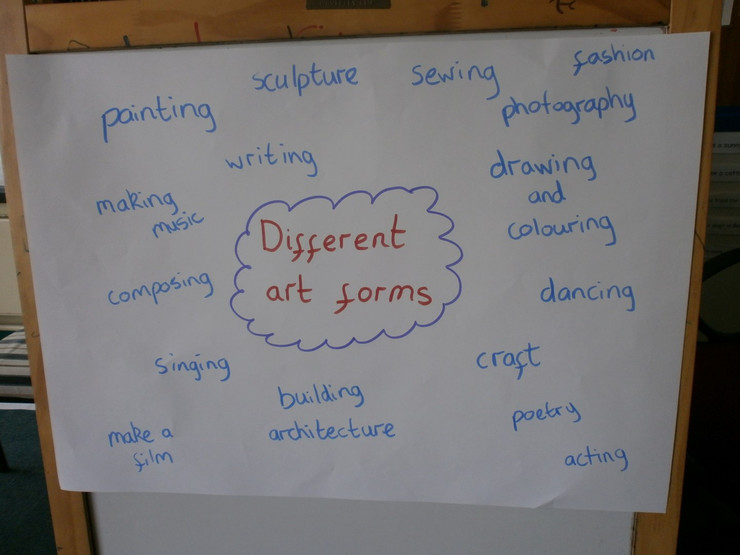 fashion
sculpture
sewing
painting
photography
writing
drawing
and
colouring
making
music
Different
art forms
composing
dancing
singing
craft
building
architecture
poetry
make a
film
acting